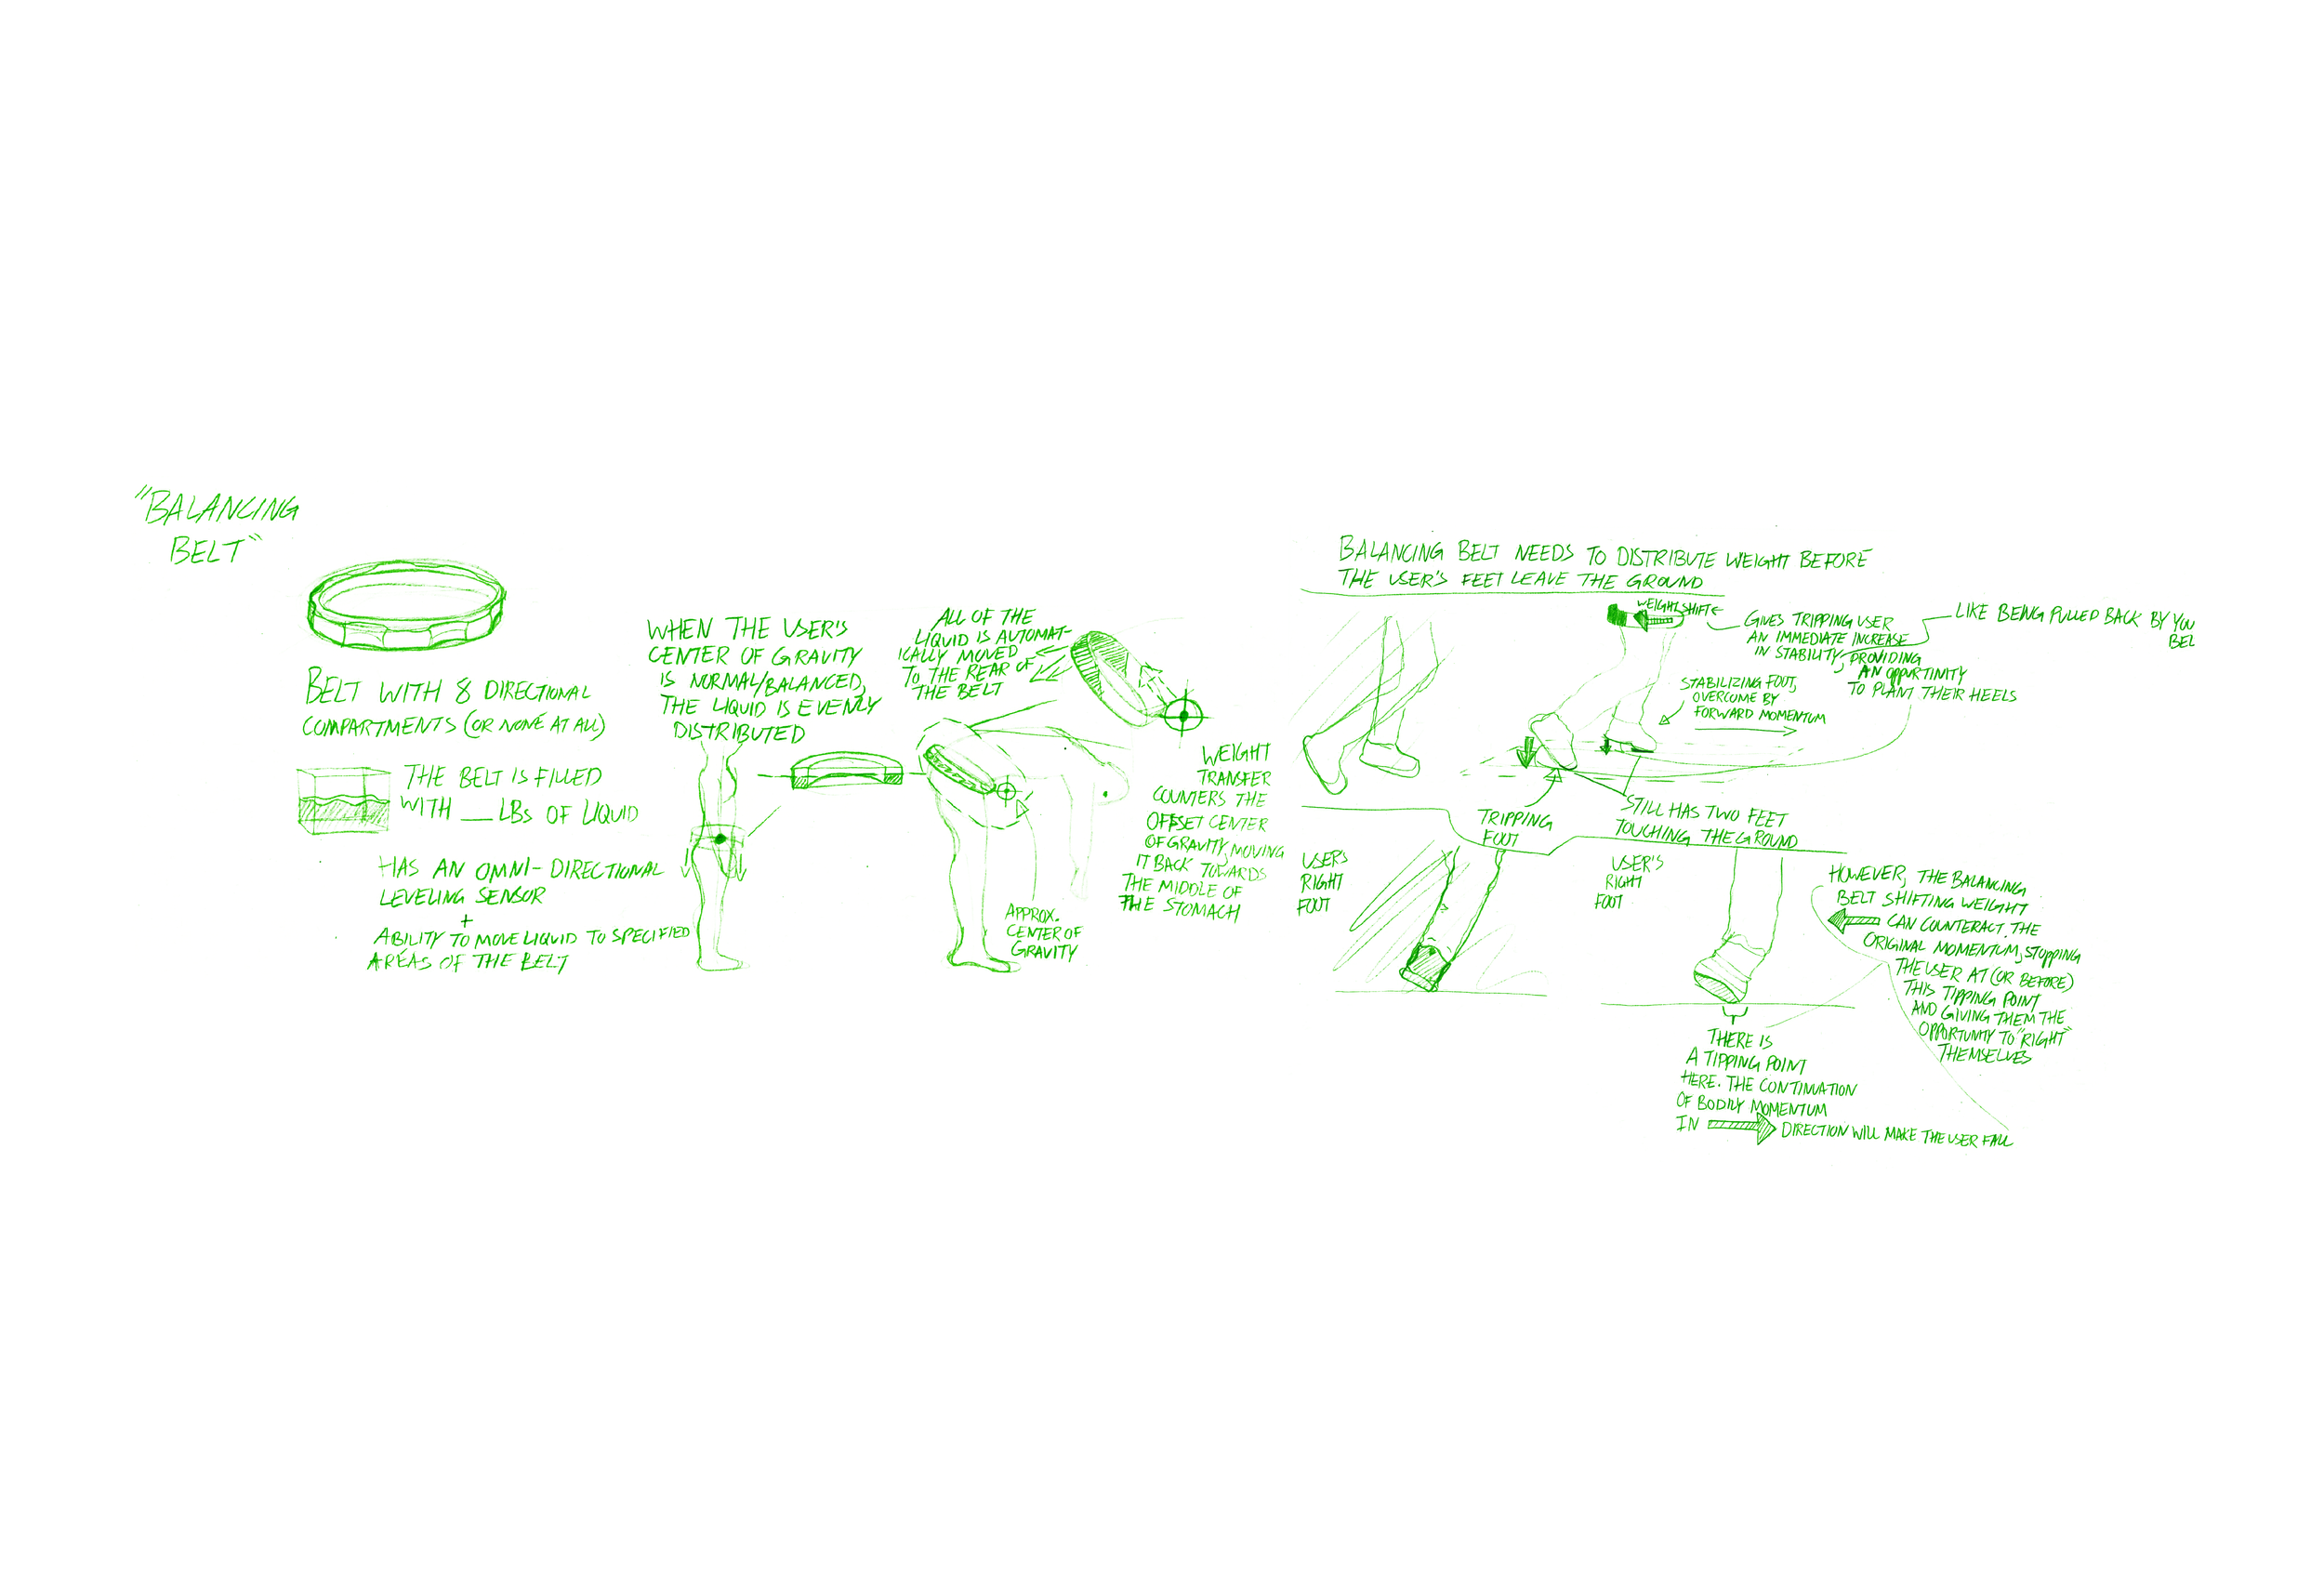 "BALANCING
BELT"
BELT WITH 8 DIRECTIONAL
COMPARTMENTS (OR NONE AT ALL)
THE BELT IS FILLED
WITH ___ LBS OF LIQUID
HAS AN OMNI-DIRECTIONAL
LEVELING SENSOR
+
ABILITY TO MOVE LIQUID TO SPECIFIED
AREAS OF THE BELT
WHEN THE USER'S
CENTER OF GRAVITY
IS NORMAL/BALANCED,
THE LIQUID IS EVENLY
DISTRIBUTED
ALL OF THE
LIQUID IS AUTOMAT-
ICALLY MOVED
TO THE REAR OF
THE BELT
APPROX.
CENTER OF
GRAVITY
WEIGHT
TRANSFER
COUNTERS THE
OFFSET CENTER
OF GRAVITY, MOVING
IT BACK TOWARDS
THE MIDDLE OF
THE STOMACH
BALANCING BELT NEEDS TO DISTRIBUTE WEIGHT BEFORE
THE USER'S FEET LEAVE THE GROUND
WEIGHT SHIFT
GIVES TRIPPING USER
AN IMMEDIATE INCREASE
IN STABILITY, PROVIDING
AN OPPURTINITY
TO PLANT THEIR HEELS
LIKE BEING PULLED BACK BY YOU
BEL
STABILIZING FOOT,
OVERCOME BY
FORWARD MOMENTUM
TRIPPING
FOOT
STILL HAS TWO FEET
TOUCHING THE GROUND
USER'S
RIGHT
FOOT
USER'S
RIGHT
FOOT
THERE IS
A TIPPING POINT
HERE. THE CONTINUATION
OF BODILY MOMENTUM
IN DIRECTION WILL MAKE THE USER FALL
HOWEVER, THE BALANCING
BELT SHIFTING WEIGHT
CAN COUNTERACT THE
ORIGINAL MOMENTUM, STOPPING
THE USER AT (OR BEFORE)
THIS TIPPING POINT
AND GIVING THEM THE
OPPORTUNITY TO "RIGHT"
THEMSELVES